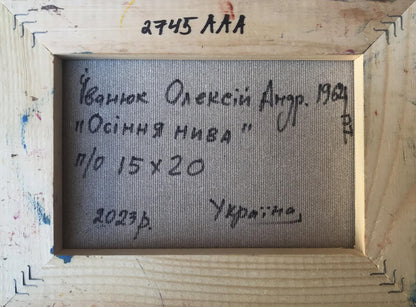 2745 ААА
Іванюк Олексій Андр. 1964
р.
"Осіння нива"
п/о 15х20
2023р. Україна